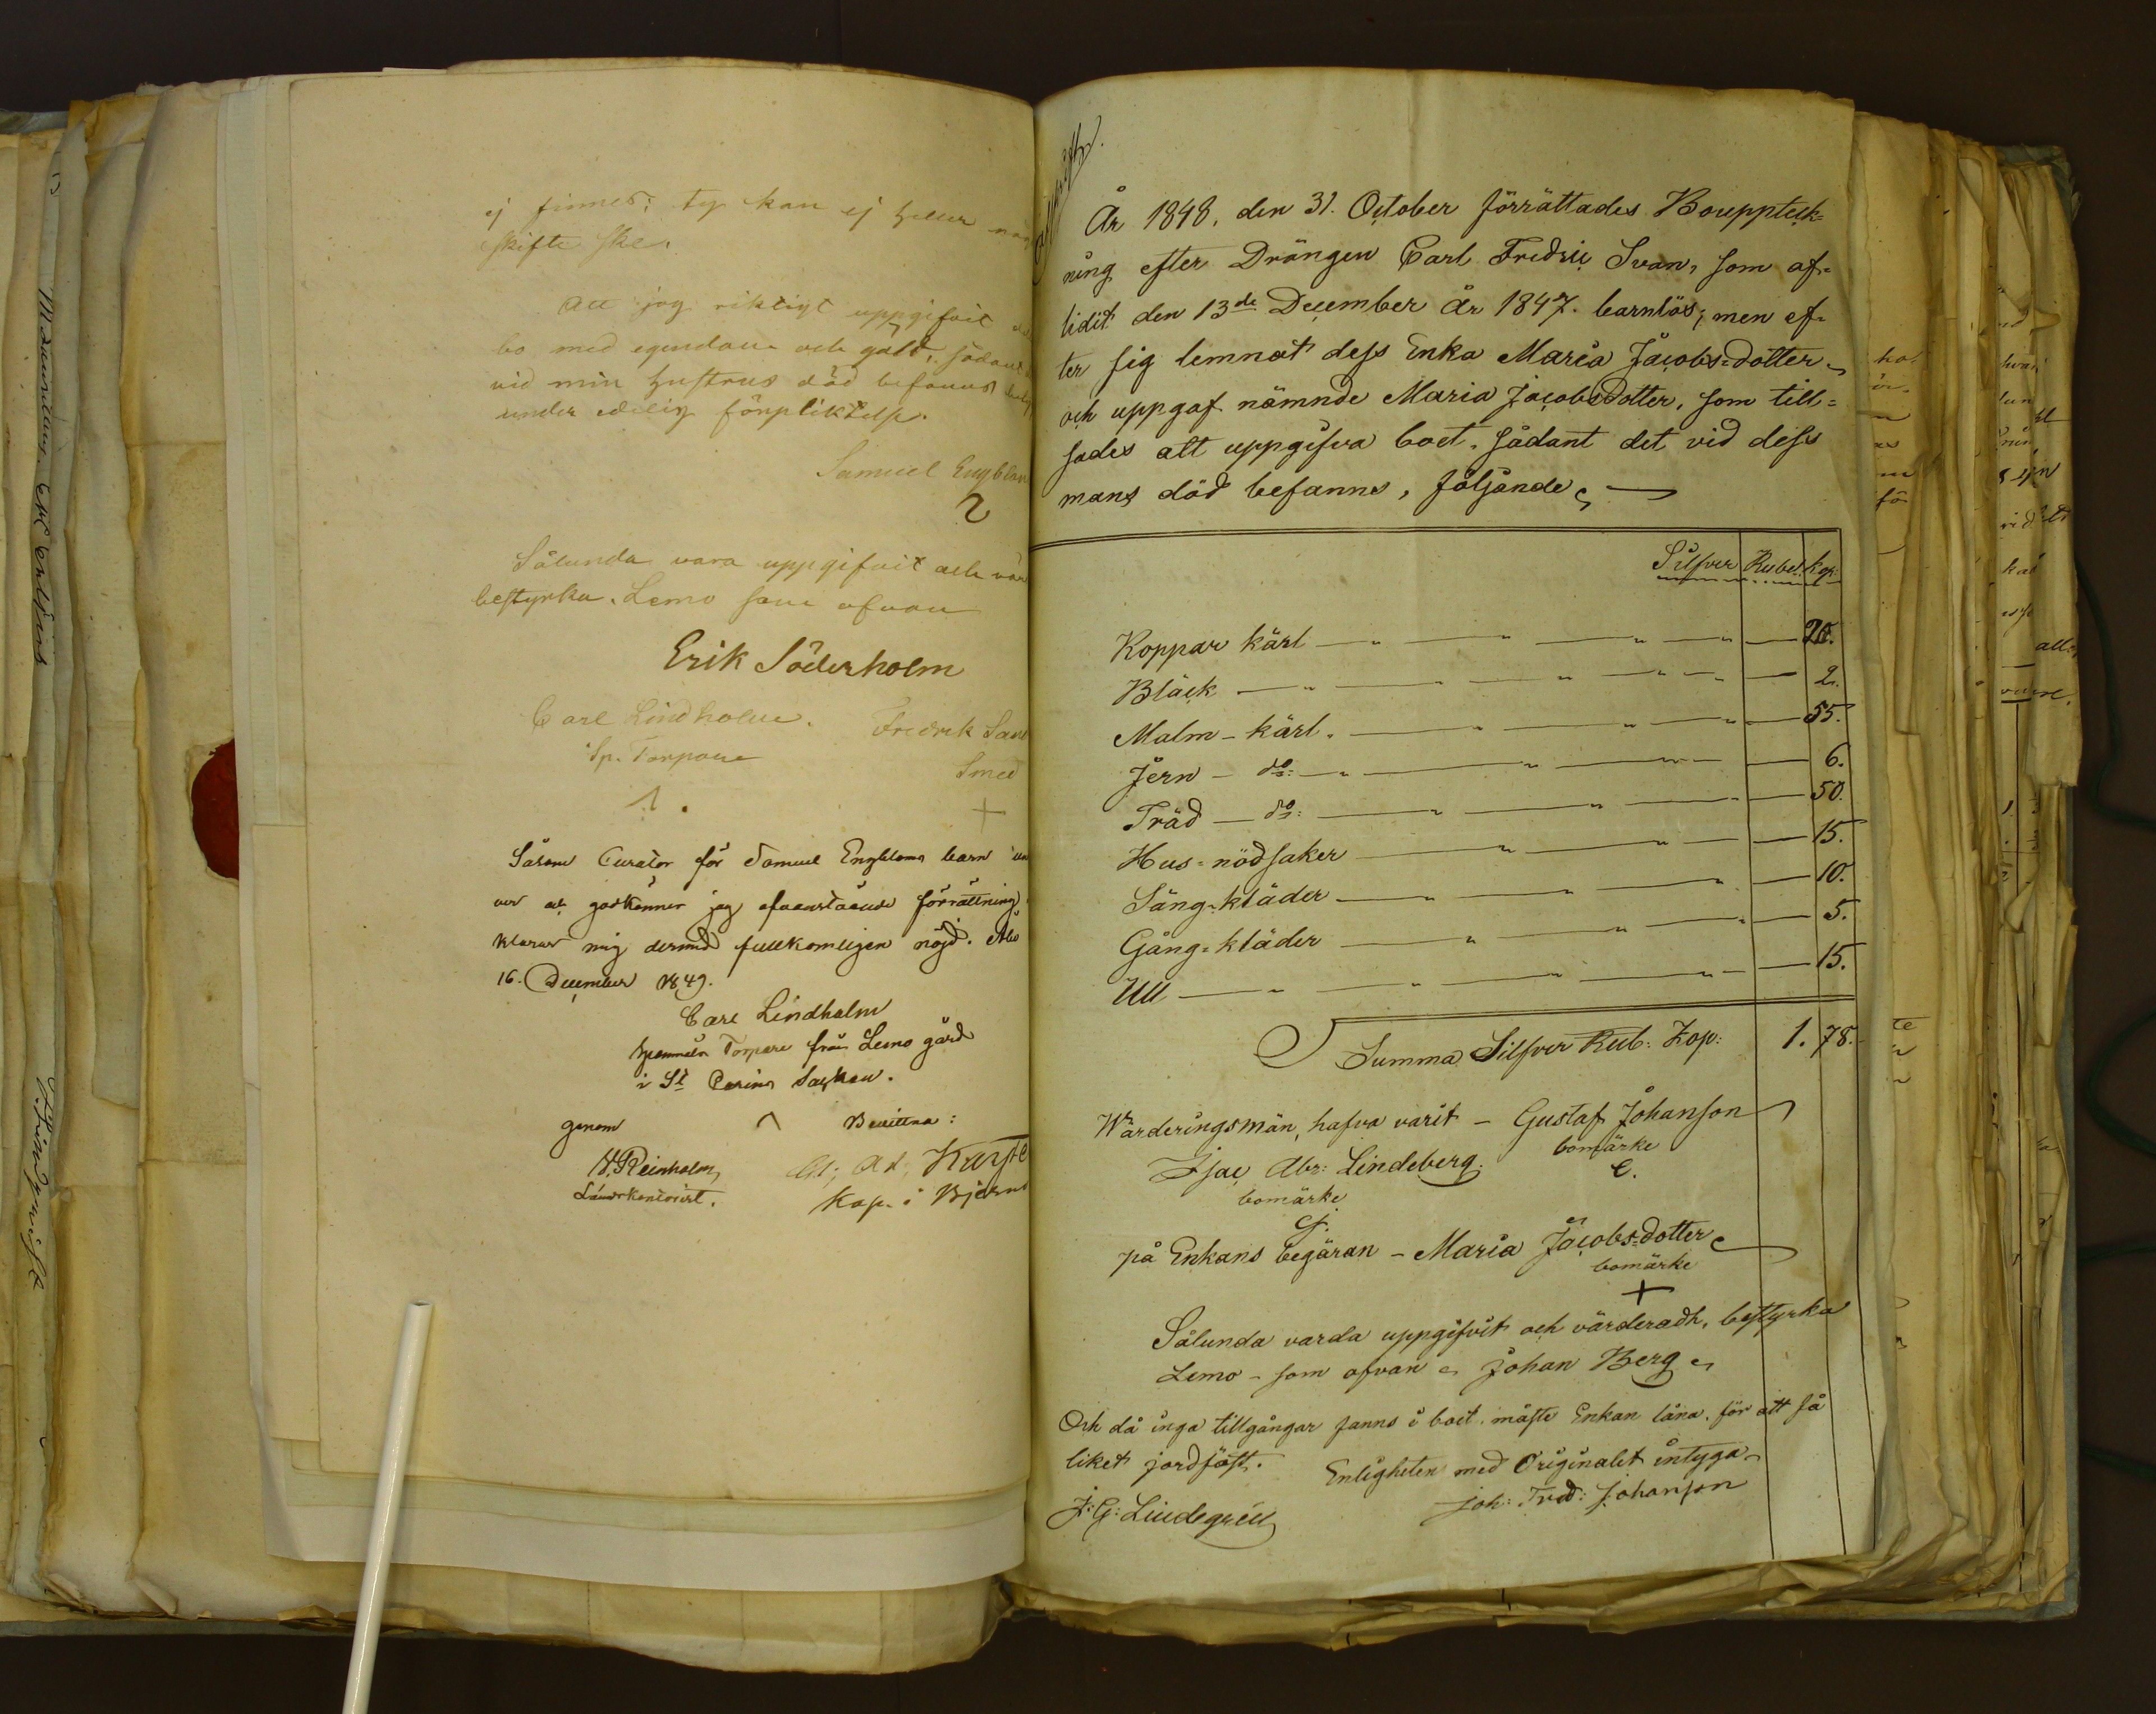 ej finnes; ty kan ej heller
skifte ske.
Att jag riktigt uppgifvit
bo med egendom och gäld, sådant
vid min hustrus död befanns
under edelig förpliktelse.
Samuel Englblom
Sålunda vara uppgifvit och
bestyrka. Lemo som ofvan
Erik Söderholm
Carl Lindholm. Fredrik
Sp. Torpare Smed
Såsom Curator för Samuel Engbloms barn
och godkänner jag ofvanstående förrättning
klarar mig dermed fullkomligen nöjd. Åbo
16. December 1849.
Carl Lindholm
Spanmåls Torpare från Lemo gård
i St Carins Sochen.
genom Bevittna:
H. Reinholm,
Landskontorist. Kap. i Bjerno
Afskrift.
År 1848, den 31. October förrättades Bouppteck=
ning efter Drängen Carl Fredric Svan, som af=
lidit den 13de December år 1847. barnlös; men ef=
ter sig lemnat dess Enka Maria Jacobs=dotter
och uppgaf nämnde Maria Jacobsdotter, som till=
sades att uppgifva boet, sådant det vid dess
mans död befanns, följande
Silfver Rubel. Kop:
Koppar kärl — 20.
Bläck — 2.
Malm - kärl. — 55.
Jern - do: — 6.
Träd - do: — 50.
Hus=nödsaker — 15.
Säng=kläder — 10.
Gång=kläder — 5.
Ull — 15.
Summa Silfver Rub: Kop: 1. 78.
Wärderingsmän, hafva varit - Gustaf Johanson
bomärke
Isac Abr: Lindeberg.
bomärke
på Enkans begäran - Maria Jacobs=dotter
bomärke
+
Sålunda varda uppgifvit och värderadt, bestyrka
Lemo - som ofvan Johan Berg
Och då inga tillgångar fanns i boet, måste Enkan låna, för att få
liket jordfäst. Enligheten med Originalet intyga
J: G: Lindegrén Joh: Fred: Johanson